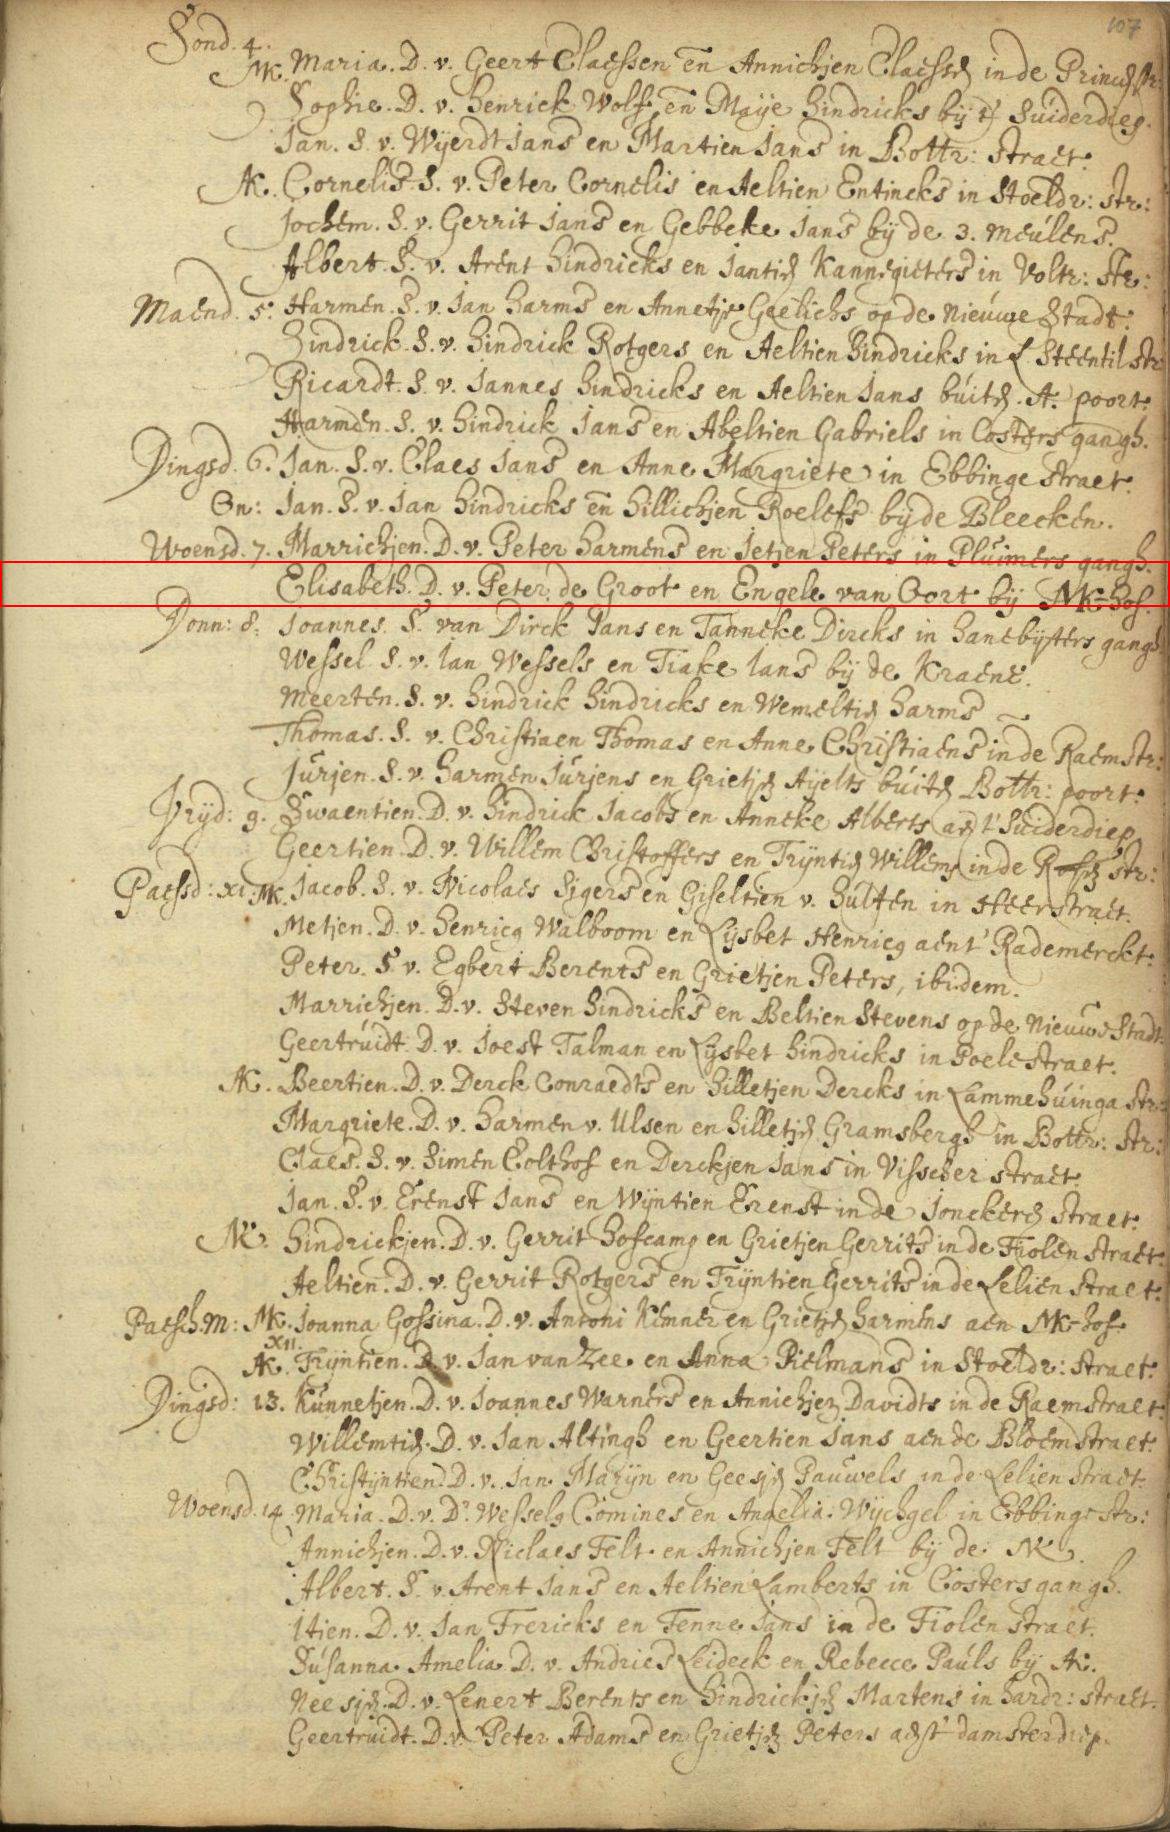 107
Sond. 4.
MK. Maria. D. v. Geert Claessen en Annichjen Claessen in de Princen str
Sophie. D. v. Henrick Wolf en Maije Hindricks bij t' Suiderdiep.
Jan. S. v. Wijerdt Jans en Martien Jans in Bottr: straet.
AK. Cornelis. S. v. Peter Cornelis en Aeltien Entincks in Stoeldr: str:
Jochem. S. v. Gerrit Jans en Gebbeke Jans bij de 3. Meulens.
Albert. S. v. Arent Hindricks en Jantien Kannegieters in Voltr: str:
Maend. 5. Harmen. S. v. Jan Harms en Annetje Geelichs op de Nieuwe Stadt.
Hindrick. S. v. Hindrick Rotgers en Aeltien Hindricks in L. Steentil str
Ricardt. S. v. Jannes Hindricks en Aeltien Jans buiten A. poort.
Harmen. S. v. Hindrick Jans en Abeltien Gabriels in Costers gangh.
Dingsd. 6. Jan. S. v. Claes Jans en Anne Margriete in Ebbinge straet.
en: Jan. S. v. Jan Hindricks en Hillichjen Roelefs bij de Bleecken.
Woensd. 7. Marrichjen. D. v. Peter Harmens en Jetjen Peters in Pluimers gangh.
Elisabeth. D. v. Peter de Groot en Engele van Oort bij MK-hof.
Donn: 8. Joannes. S. van Dirck Jans en Tanneke Dircks in Hanebijters gangh
Wessel. S. v. Jan Wessels en Tiake Jans bij de Kraene.
Meerten. S. v. Hindrick Hindricks en Wemeltien Harms
Thomas. S. v. Christiaen Thomas en Anne Christiaens in de Raemstr:
Jurjen. S. v. Harmen Jurjens en Grietjen Aijelts buiten Bottr: poort.
Vryd: 9. Swaentien. D. v. Hindrick Jacobs en Anneke Alberts aen t' Suiderdiep
Geertien. D. v. Willem Christoffers en Trijntien Willems in de Rosen str:
Paesd: XI. MK. Jacob. S. v. Nicolaes Sigers en Giseltien v. Hulten in Heerstraet.
Metjen. D. v. Henricq Walboom en Lijsbet Henricq aent' Rademerckt.
Peter. S. v. Egbert Berents en Grietjen Peters, ibidem.
Marrichjen. D. v. Steven Hindricks en Beltien Stevens op de Nieuwe Stadt
Geertruidt. D. v. Joest Talman en Lijsbet Hindricks in Poele straet.
AK. Beertien. D. v. Derck Conraedts en Hilletjen Dercks in Lammehuinga str:
Margriete. D. v. Harmen v. Ulsen en Hilletjen Gramsbergh in Bottr: str:
Claes. S. v. Simen Colthof en Derckjen Jans in Visscher straet.
Jan. S. v. Erenst Jans en Wijntien Erenst in de Jonckeren straet.
NK. Hindrickjen. D. v. Gerrit Hofcamp en Grietjen Gerrits in de Fiolen straet.
Aeltien. D. v. Gerrit Rotgers en Trijntien Gerrits in de Lelien straet.
Paesch.M: MK. Joanna Gossina. D. v. Antoni Kemner en Grietjen Harmens aen MK-hof
XII.
AK. Trijntien. D. v. Jan van Zee en Anna Pielmans in Stoeldr: straet.
Dingsd: 13. Kunnetjen. D. v. Joannes Warners en Annichjen Davidts in de Raemstraet
Willemtien. D. v. Jan Altingh en Geertien Jans aen de Bloemstraet.
Christijntien. D. v. Jan Marijn en Geesjen Pauwels in de Lelien straet.
Woensd. 14 Maria. D. v. Dr. Wesselq Comines en Angelia Wijchgel in Ebbinge str:
Annichjen. D. v. Niclaes Felt en Annichjen Felt bij de NK.
Albert. S. v. Arent Jans en Aeltien Lamberts in Costers gangh.
Itien. D. v. Jan Frericks en Fenne Jans in de Fiolen straet.
Susanna Amelia. D. v. Andries Leideck en Rebecce Pauls bij AK.
Neesjen. D. v. Lenert Berents en Hindrickjen Martens in Hardr: straet.
Geertruidt. D. v. Peter Adams en Grietjen Peters aen t' damsterdiep.